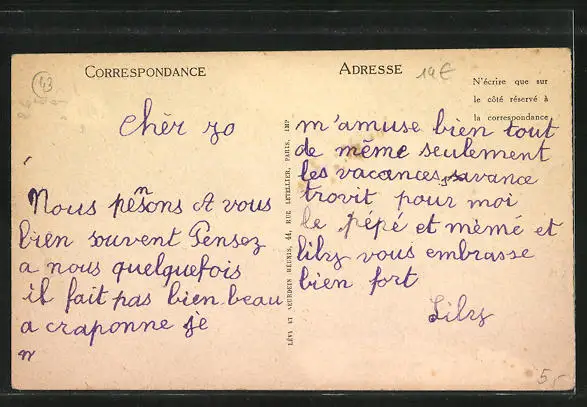 43
CORRESPONDANCE
chèr zo
Nous pensons A vous
bien souvent Pensez
a nous quelquefois
il fait pas bien beau
a craponne je
m
LÉVY ET NEURDEIN RÉUNIS, 44, RUE LETELLIER, PARIS, IMP
ADRESSE
19€
N'écrire que sur
le côté réservé à
la correspondance
m'amuse bien tout
de même seulement
les vacances savance
trovit pour moi
le pépé et mémé et
lily vous embrasse
bien fort
Lily
5,-